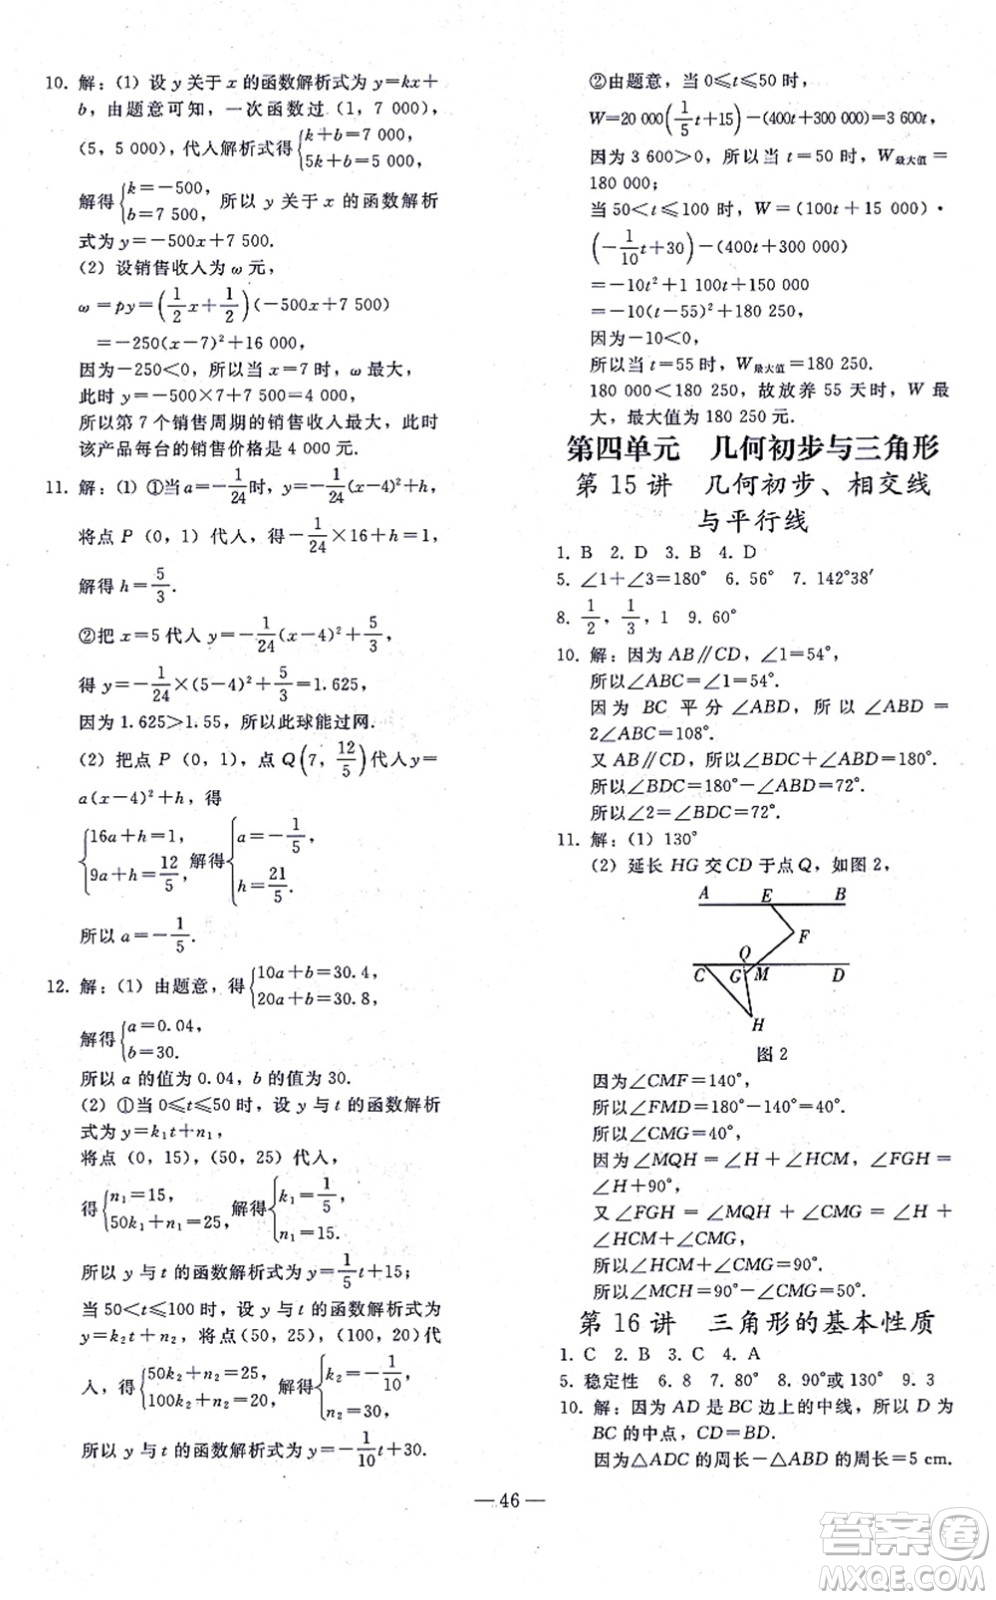 10. 解：(1) 设 y 关于 x 的函数解析式为 y=kx+
b，由题意可知，一次函数过 (1, 7 000)，
(5, 5 000)，代入解析式得{k+b=7 000,
5k+b=5 000,
解得{k=-500,
b=7 500,
所以 y 关于 x 的函数解析
式为 y=-500x+7 500.
(2) 设销售收入为 ω 元，
ω=py=(1/2 x+1/2)(-500x+7 500)
=-250(x-7)²+16 000，
因为-250<0，所以当 x=7 时，ω 最大，
此时 y=-500×7+7 500=4 000，
所以第 7 个销售周期的销售收入最大，此时
该产品每台的销售价格是 4 000 元.
11. 解：(1) ①当 a=-1/24 时，y=-1/24(x-4)²+h，
将点 P (0, 1) 代入，得-1/24×16+h=1，
解得 h=5/3.
②把 x=5 代入 y=-1/24(x-4)²+5/3，
得 y=-1/24×(5-4)²+5/3=1.625，
因为 1.625>1.55，所以此球能过网.
(2) 把点 P (0, 1)，点 Q(7, 12/5)代入 y=
a(x-4)²+h，得
{16a+h=1,
9a+h=12/5,
解得{a=-1/5,
h=21/5.
所以 a=-1/5.
12. 解：(1) 由题意，得{10a+b=30.4,
20a+b=30.8,
解得{a=0.04,
b=30.
所以 a 的值为 0.04，b 的值为 30.
(2) ①当 0≤t≤50 时，设 y 与 t 的函数解析
式为 y=k₁t+n₁，
将点 (0, 15)，(50, 25) 代入，
得{n₁=15,
50k₁+n₁=25,
解得{k₁=1/5,
n₁=15.
所以 y 与 t 的函数解析式为 y=1/5 t+15；
当 50<t≤100 时，设 y 与 t 的函数解析式为
y=k₂t+n₂，将点 (50, 25)，(100, 20) 代
入，得{50k₂+n₂=25,
100k₂+n₂=20
解得{k₂=-1/10,
n₂=30,
所以 y 与 t 的函数解析式为 y=-1/10 t+30.
②由题意，当 0≤t≤50 时，
W=20 000(1/5 t+15)-(400t+300 000)=3 600t，
因为 3 600>0，所以当 t=50 时，W最大值=
180 000；
当 50<t≤100 时，W=(100t+15 000)·
(-1/10 t+30)-(400t+300 000)
=-10t²+1 100t+150 000
=-10(t-55)²+180 250，
因为-10<0，
所以当 t=55 时，W最大值=180 250.
180 000<180 250，故放养 55 天时，W 最
大，最大值为 180 250 元.
第四单元 几何初步与三角形
第 15 讲 几何初步、相交线
与平行线
1. B 2. D 3. B 4. D
5. ∠1+∠3=180° 6. 56° 7. 142°38′
8. 1/2，1/3，1 9. 60°
10. 解：因为 AB∥CD，∠1=54°，
所以∠ABC=∠1=54°.
因为 BC 平分∠ABD，所以∠ABD=
2∠ABC=108°.
又 AB∥CD，所以∠BDC+∠ABD=180°.
所以∠BDC=180°-∠ABD=72°.
所以∠2=∠BDC=72°.
11. 解：(1) 130°
(2) 延长 HG 交 CD 于点 Q，如图 2，
A E B
F
Q
C G M D
H
图 2
因为∠CMF=140°，
所以∠FMD=180°-140°=40°.
所以∠CMG=40°，
因为∠MQH=∠H+∠HCM，∠FGH=
∠H+90°，
又∠FGH=∠MQH+∠CMG=∠H+
∠HCM+∠CMG，
所以∠HCM+∠CMG=90°.
所以∠MCH=90°-∠CMG=50°.
第 16 讲 三角形的基本性质
1. C 2. B 3. C 4. A
5. 稳定性 6. 8 7. 80° 8. 90°或 130° 9. 3
10. 解：因为 AD 是 BC 边上的中线，所以 D 为
BC 的中点，CD=BD.
因为△ADC 的周长-△ABD 的周长=5 cm.
— 46 —
答案卷
MXQE.COM